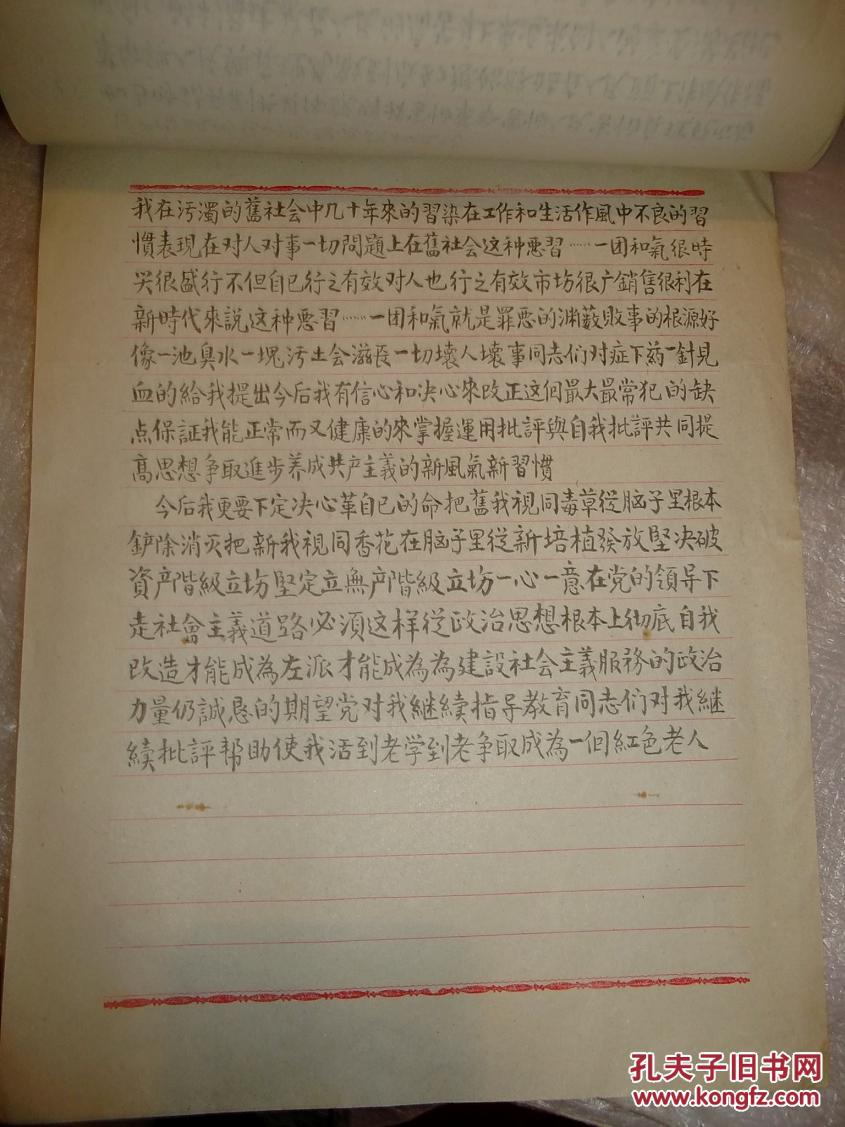 我在污濁的舊社会中几十年來的習染在工作和生活作風中不良的習
慣表現在对人对事一切問題上在舊社会这种悪習……一团和氣很時
兴很盛行不但自己行之有效对人也行之有效市坊很广銷售很利在
新時代來説这种悪習……一团和氣就是罪悪的渊薮敗事的根源好
像一池臭水一塊污土会滋長一切壞人壞事同志们对症下葯一針見
血的給我提出今后我有信心和决心來改正这個最大最常犯的缺
点保証我能正常而又健康的來掌握運用批評與自我批評共同提
高思想争取進步养成共产主義的新風氣新習慣
今后我更要下定决心革自己的命把舊我視同毒草従脑子里根本
铲除消灭把新我視同香花在脑子里従新培植發放堅决破
資产階級立坊堅定立無产階級立坊一心一意在党的領导下
走社會主義道路必須这样従政治思想根本上彻底自我
改造才能成為左派才能成為為建設社会主義服務的政治
力量仍誠恳的期望党对我継續指导教育同志们对我継
續批評帮助使我活到老学到老争取成為一個紅色老人
孔夫子旧书网
www.kongfz.com